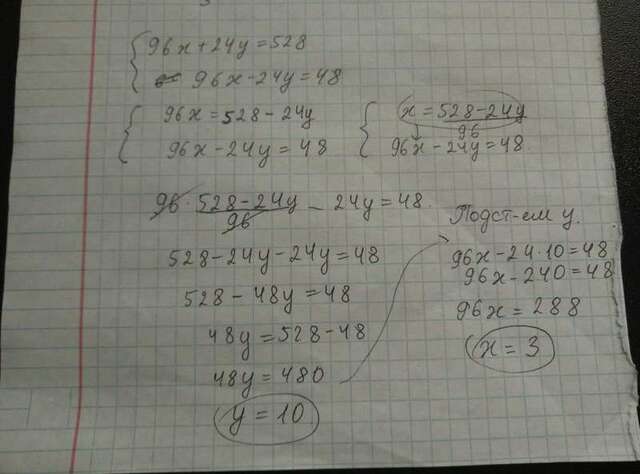 96x+24y=528
96x-24y=48
96x=528-24y
96x-24y=48
x=528-24y
96
96x-24y=48
96·528-24y-24y=48
96
528-24y-24y=48
528-48y=48
48y=528-48
48y=480
y=10
Подст-ем y.
96x-24·10=48
96x-240=48
96x=288
x=3